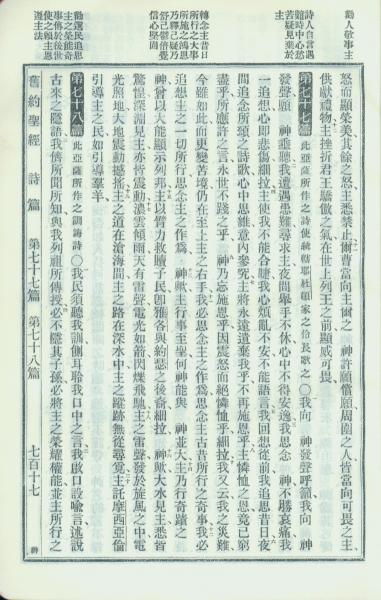 勸人敬事主
詩人自言遇
難時中心愁
苦疑見棄於
主
轉念主昔日
所行之大事
所施之鴻恩
乃釋己疑乃
舒己鬱信
心堅固
勸選民追思
主之榮能奇
事傳於後世
使之賴主恩
遵主法
怒而顯榮美其餘之怒主悉禁止爾曹當向主爾之 神許願償願周圍之人皆當向可畏之主
供獻禮物主挫折君王驕傲之氣在世上列王之前顯威可畏
第七十七篇 此亞薩所作之詩使轄耶杜頓家之伶長歌之〇我向 神發聲呼籲我向 神
發聲願 神垂聽我遭遇患難尋求主夜間舉手不休心中不得安逸我思念 神不勝哀痛我
一追想心即悲傷細拉主使我不能合睫我心煩亂不安不能語言我回想從前我追思昔日夜
間追念所頌之詩歌心中思維意內參究主將永遠遺棄我乎不再施恩乎主憐恤之恩竟已窮
盡乎所應許之言永世不踐之乎 神乃忘施恩乎因震怒而絕憐恤乎細拉我又云我之災難
今雖如此而更變苦境仍在至上主之右手我必思念主之作為思念主古昔所行之奇事我必
追想主之一切所行思念主之作為 神歟主行事至聖何神能與 神並大主乃行奇蹟之
神曾以大能顯示列邦主以臂力救贖子民即雅各與約瑟之後裔細拉 神歟大水見主悉皆
驚惶深淵見主亦皆震動濃雲傾雨天有雷聲電光如箭閃爍飛馳主之雷聲發於旋風之中電
光照地大地震動撼搖主之道在滄海間主之路在深水中主之蹤跡無從尋覓主託摩西亞倫
引導主之民如引導羣羊
第七十八篇 此亞薩所作之訓誨詩〇我民須聽我訓側耳聆我口中之言我啟口設喻言述說
古來之隱語我儕所聞所知與我列祖所傳授必不隱其子孫必將主之榮耀權能並主所行之
舊約聖經 詩篇 第七十七篇 第七十八篇 七百十七